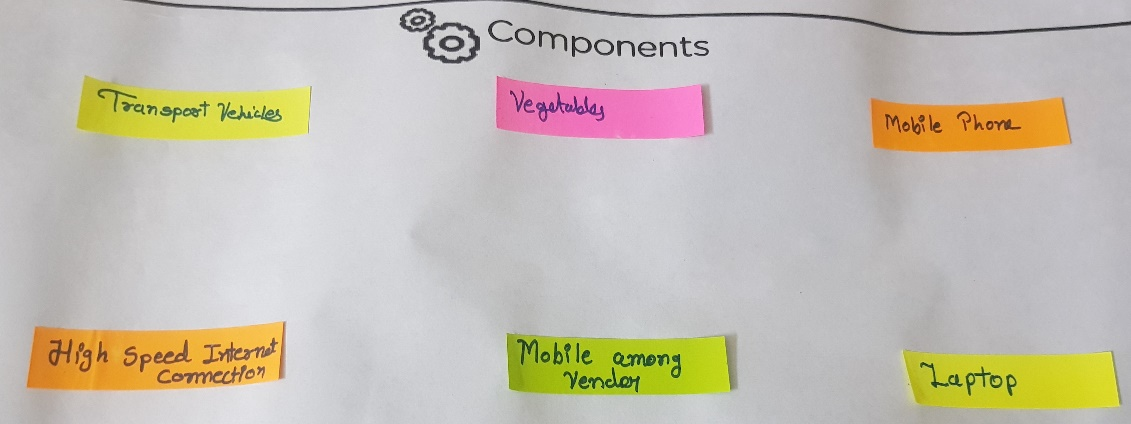 Components
Transport Vehicles
Vegetables
Mobile Phone
High Speed Internet
Connection
Mobile among
Vendor
Laptop